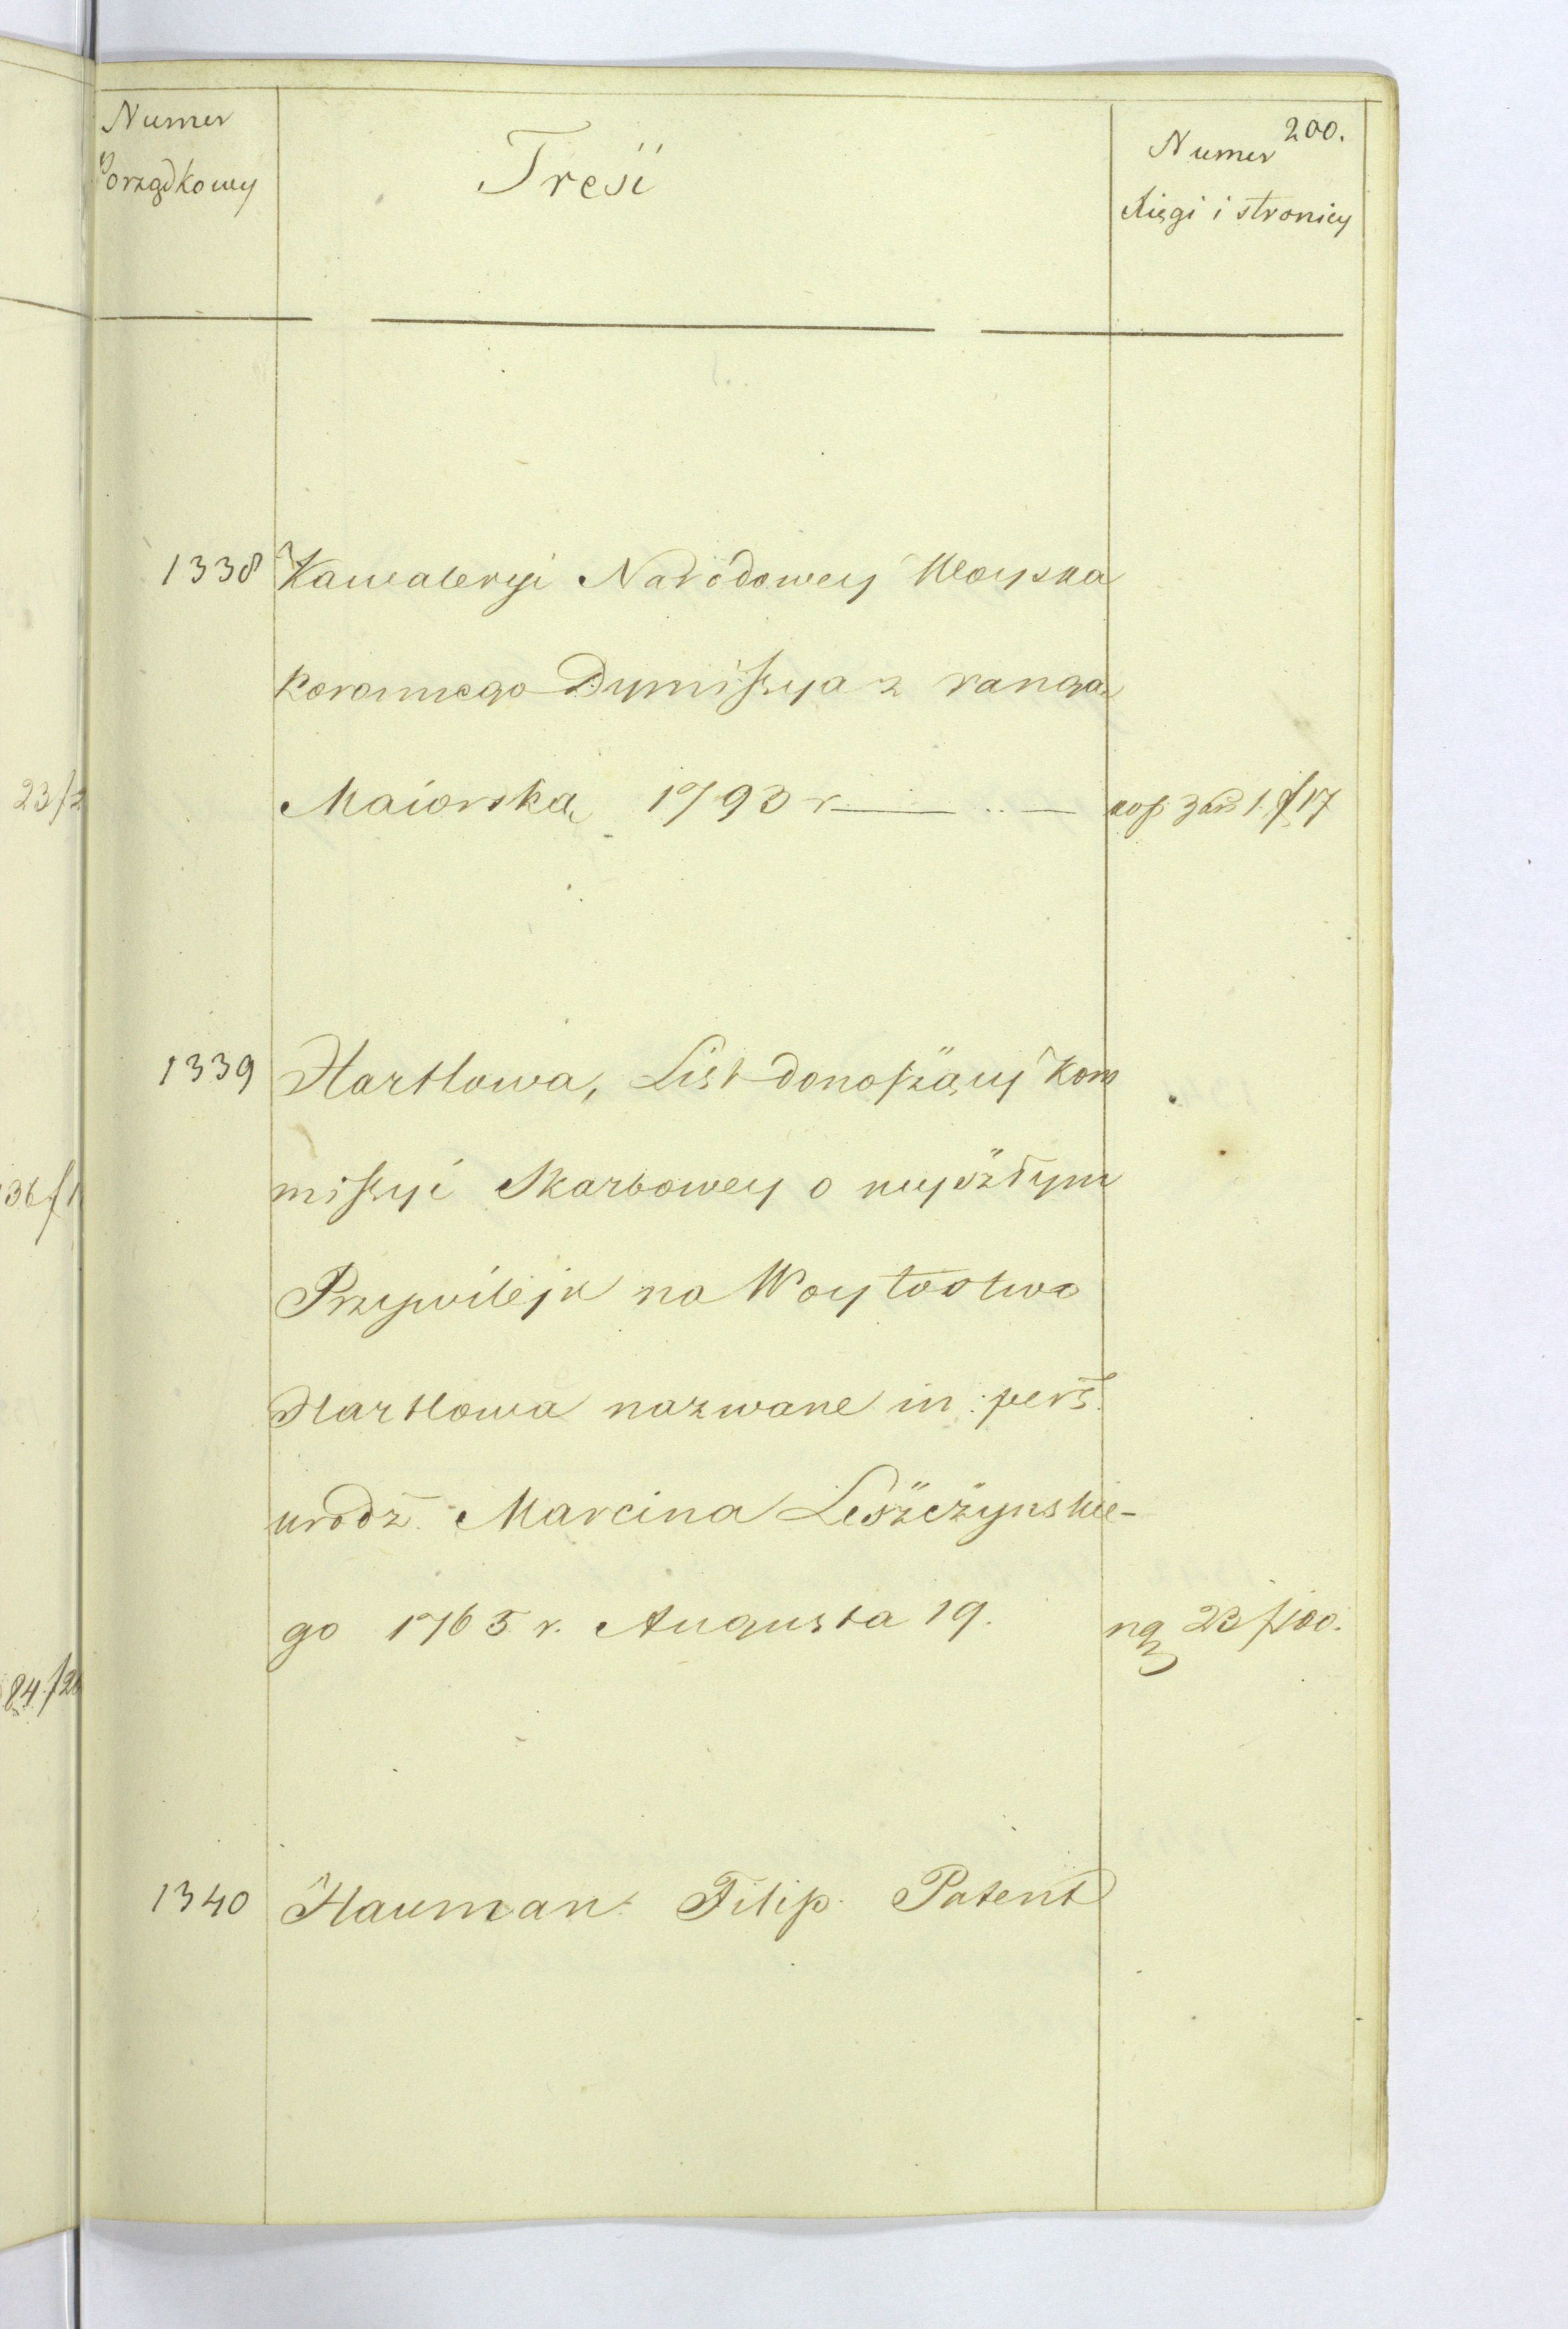 200.
Numer
Porządkowy
Treść
Numer
Xięgi i stronicy
1338 Kawaleryi Narodowey Woyska
koronnego Dymissya z rangą
Maiorską 1793 r
1339 Hartlowa, List donoszący Kom
missyi Skarbowey o wyszłym
Przywileju na Woytostwo
Hartlowa nazwane in pers.
urodz. Marcina Leszczynskie-
go 1765 r. Augusta 19. 23 f 100.
1340 Hauman Filip Patent
23 f 2
36 f 1
84 f 26